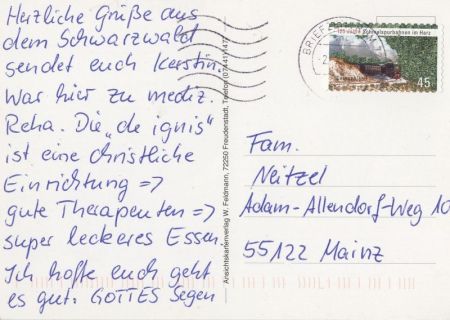 Herzliche Grüße aus
dem Schwarzwald
sendet euch Kerstin.
War hier zu mediz.
Reha. Die „de ignis"
ist eine christliche
Einrichtung =>
gute Therapeuten =>
super leckeres Essen.
Ich hoffe euch geht
es gut. GOTTES Segen
Ansichtskartenverlag W. Feldmann, 72250 Freudenstadt, Telefon
BRIEF
Schmalspurbahnen im Harz
45
Fam.
Neitzel
Adam-Allendorf-Weg 10
55122 Mainz